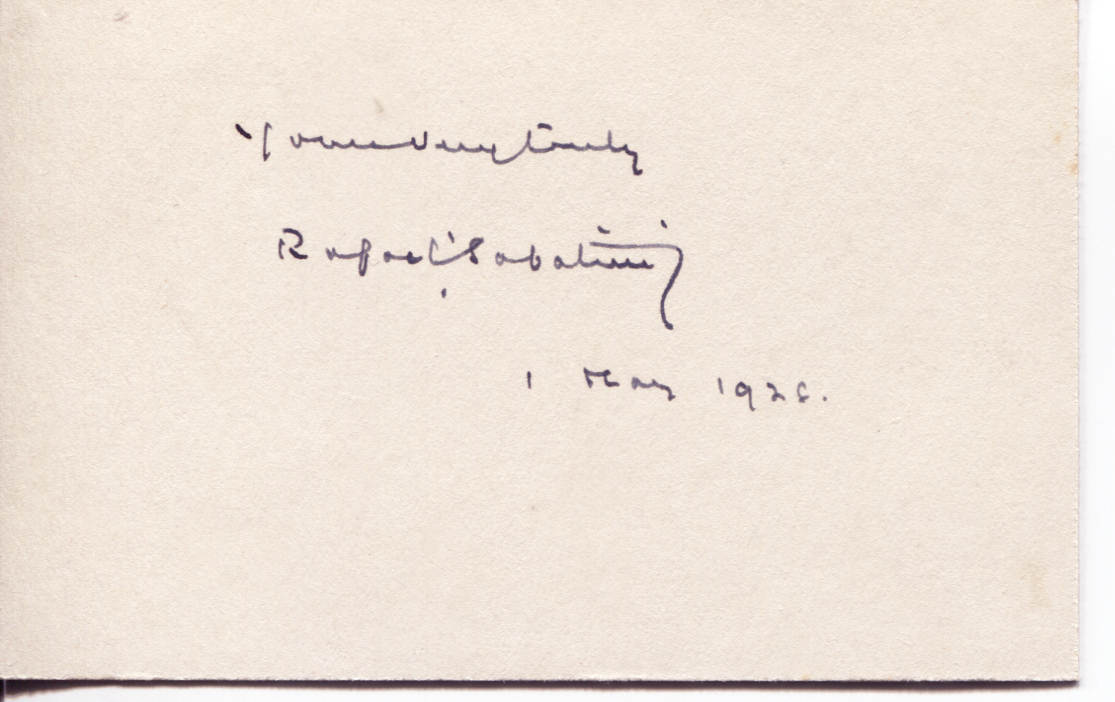 Yours very truly
Rafael Sabatini
1 May 192